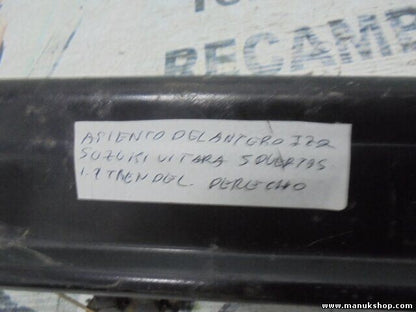 RECAMB
ASIENTO DELANTERO IZQ
SUZUKI VITARA 5 PUERTAS
DEL. DERECHO
www.manukshop.com